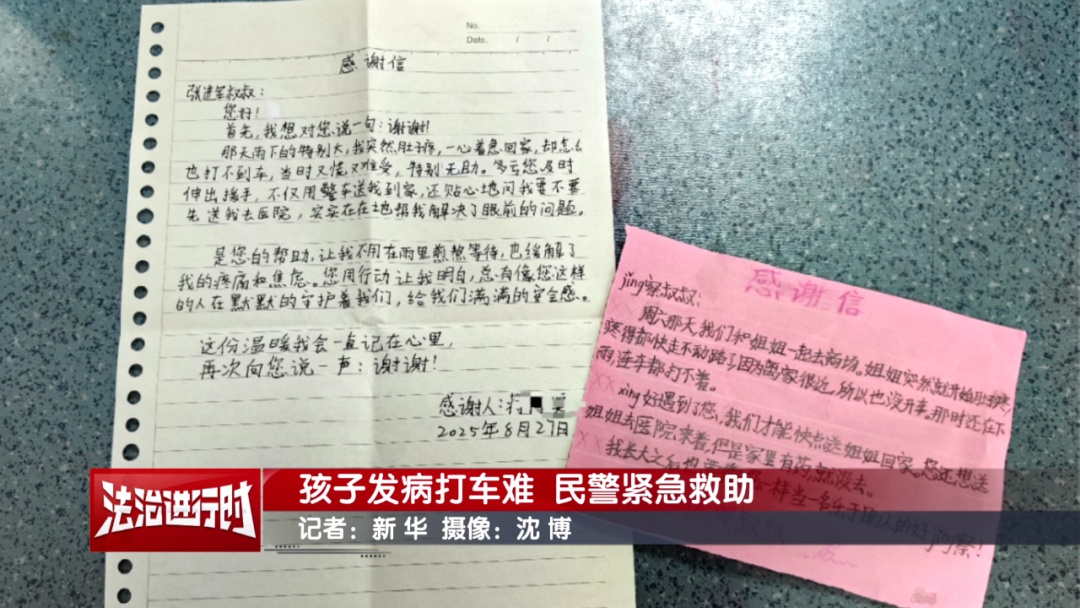 No.
Date. / /
感谢信
张建军叔叔：
您好！
首先，我想对您说一句：谢谢！
那天雨下的特别大，我突然肚子疼，一心着急回家，却怎么
也打不到车，当时又慌又难受，特别无助。多亏您及时
伸出援手，不仅用警车送我到家，还贴心地问我要不要
先送我去医院，实实在在地帮我解决了眼前的问题。
是您的帮助，让我不用在雨里煎熬等待，也缓解了
我的疼痛和焦虑。您用行动让我明白，总有像您这样
的人在默默的守护着我们，给我们满满的安全感。
这份温暖我会一直记在心里，
再次向您说一声：谢谢！
感谢人：
2025年8月27日
感谢信
jǐng察叔叔：
周六那天，我们和姐姐一起去商场。姐姐突然就开始肚子疼，
疼得都快走不动路了，因为离家很近，所以也没开车。那时还在下
雨，连车都打不着。
xìng好遇到了您，我们才能快点送姐姐回家。您还想送
姐姐去医院来着，但是家里有药就没去。
我长大之后想要
一样当一名乐于助人的好jǐng察！
法治进行时
孩子发病打车难 民警紧急救助
记者：新华 摄像：沈博